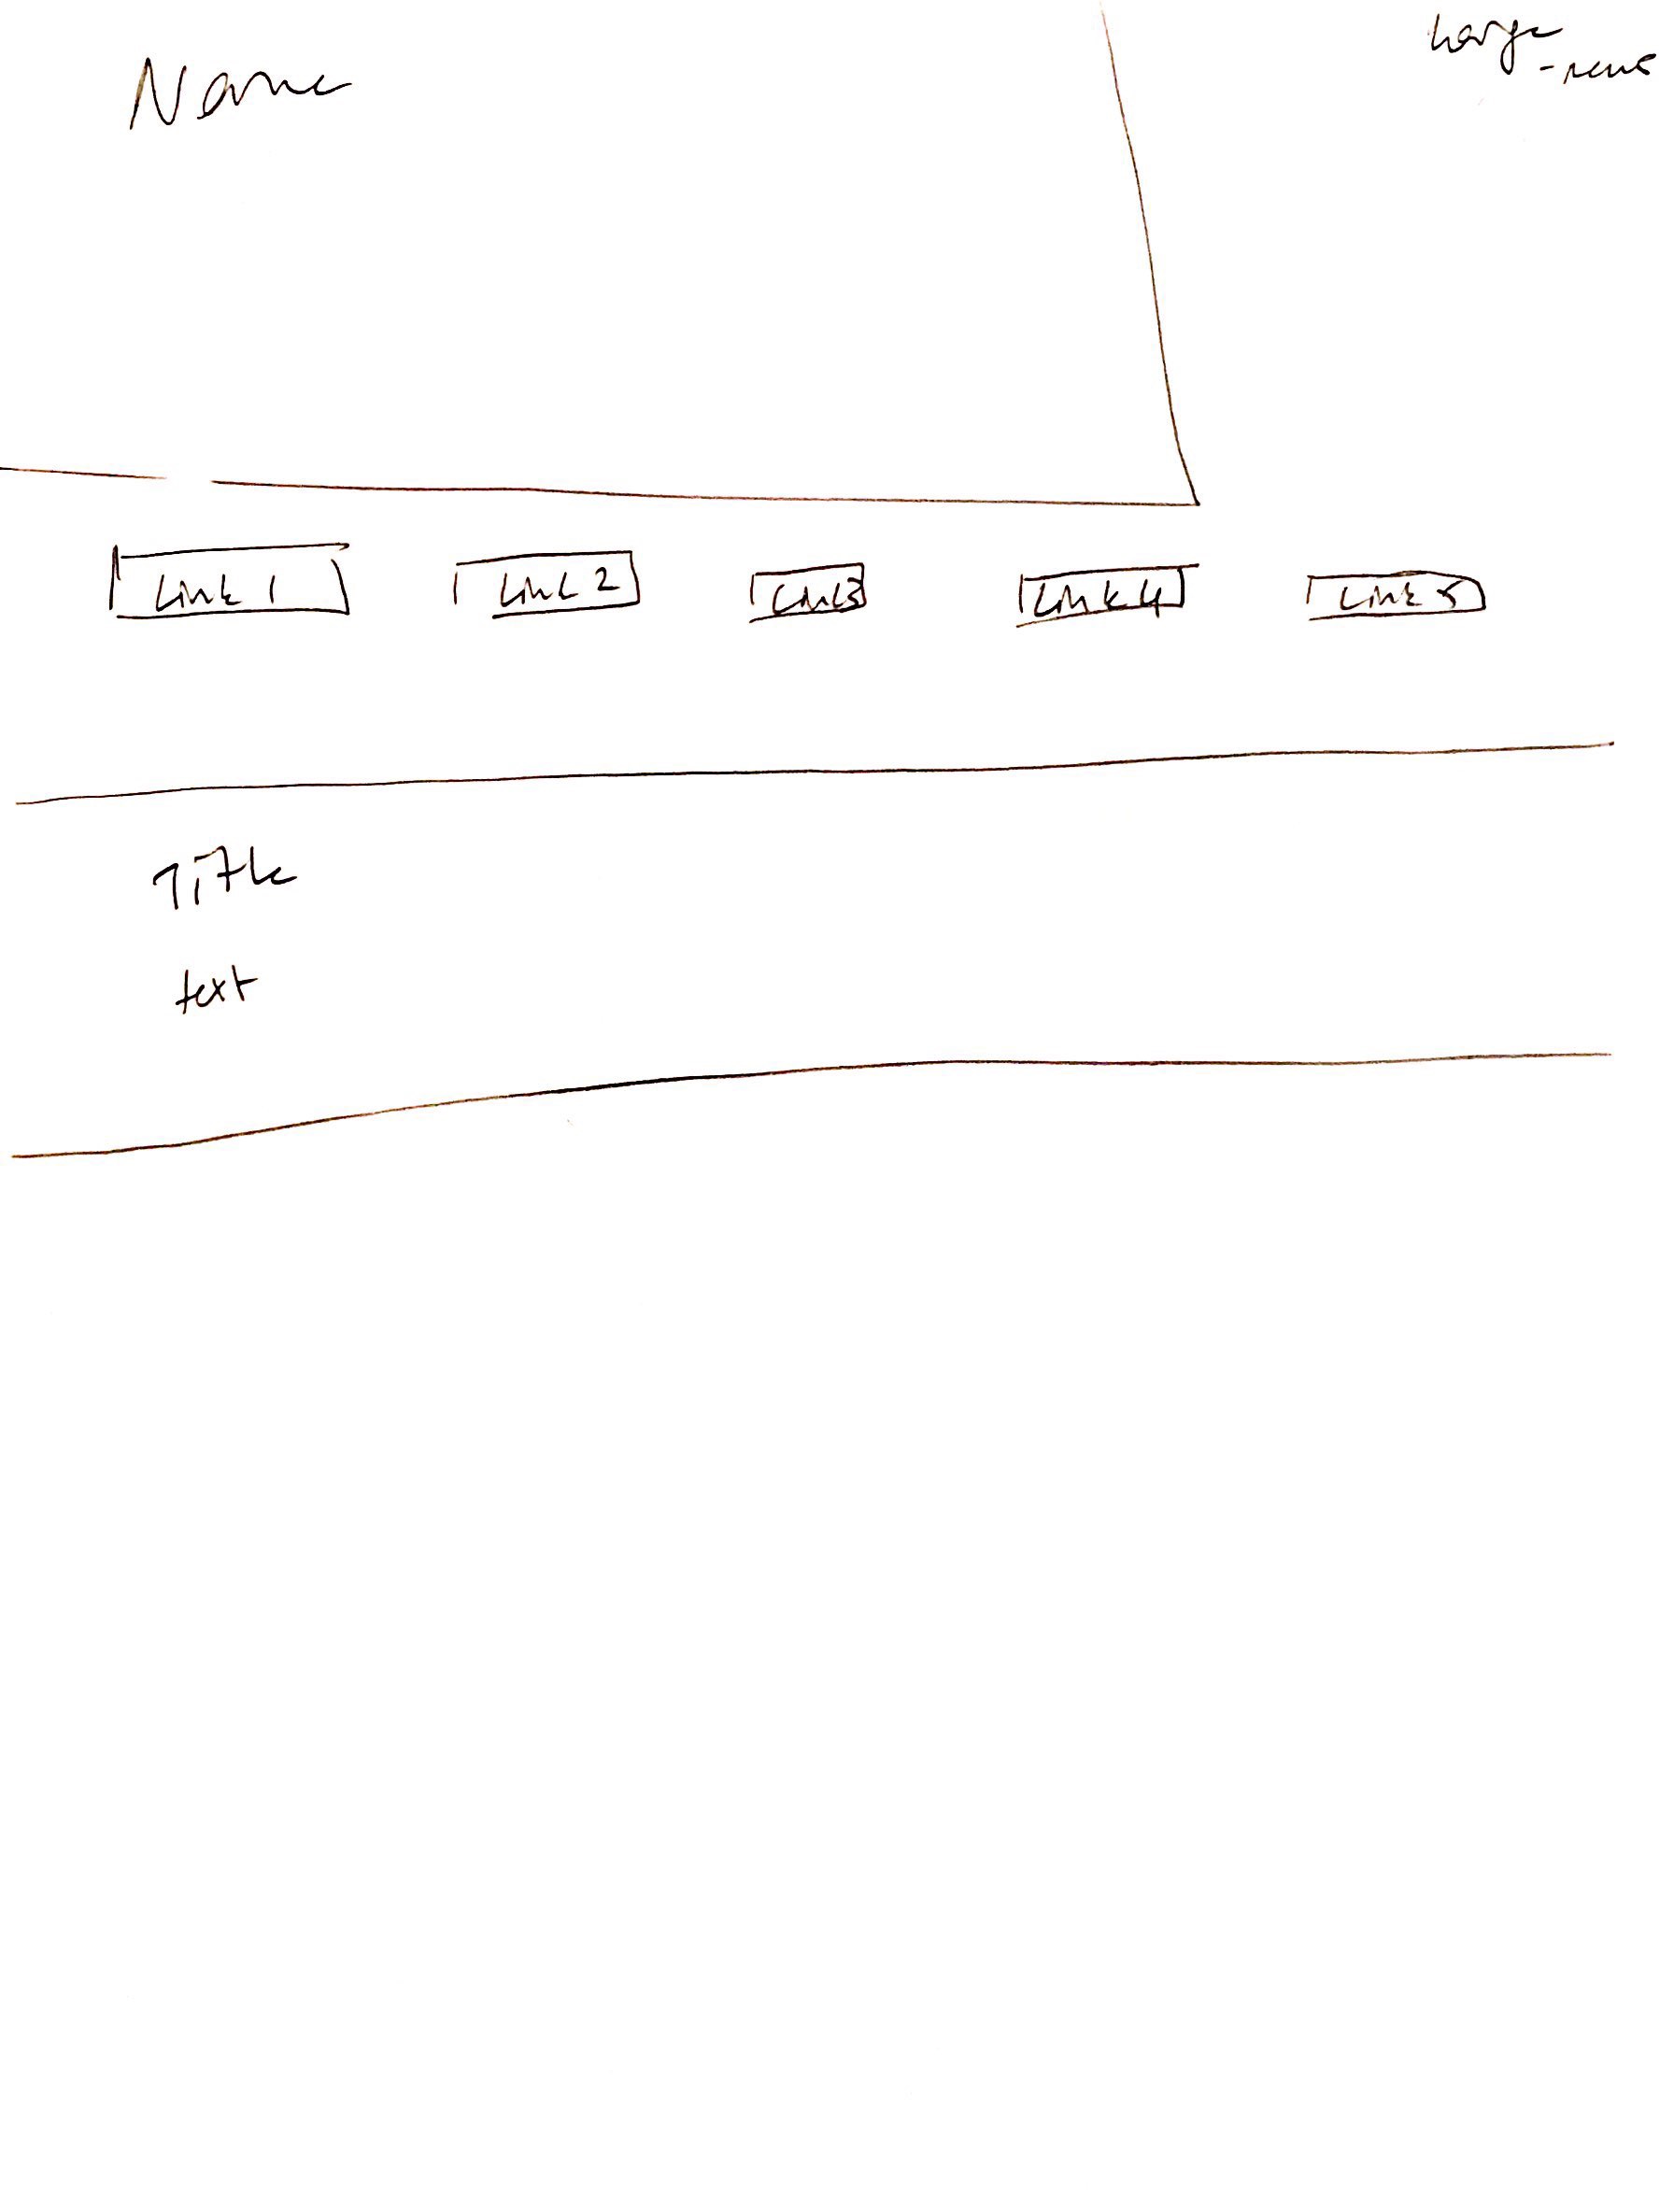 Name
Link 1
Link 2
Link 3
Link 4
Link 5
Title
text